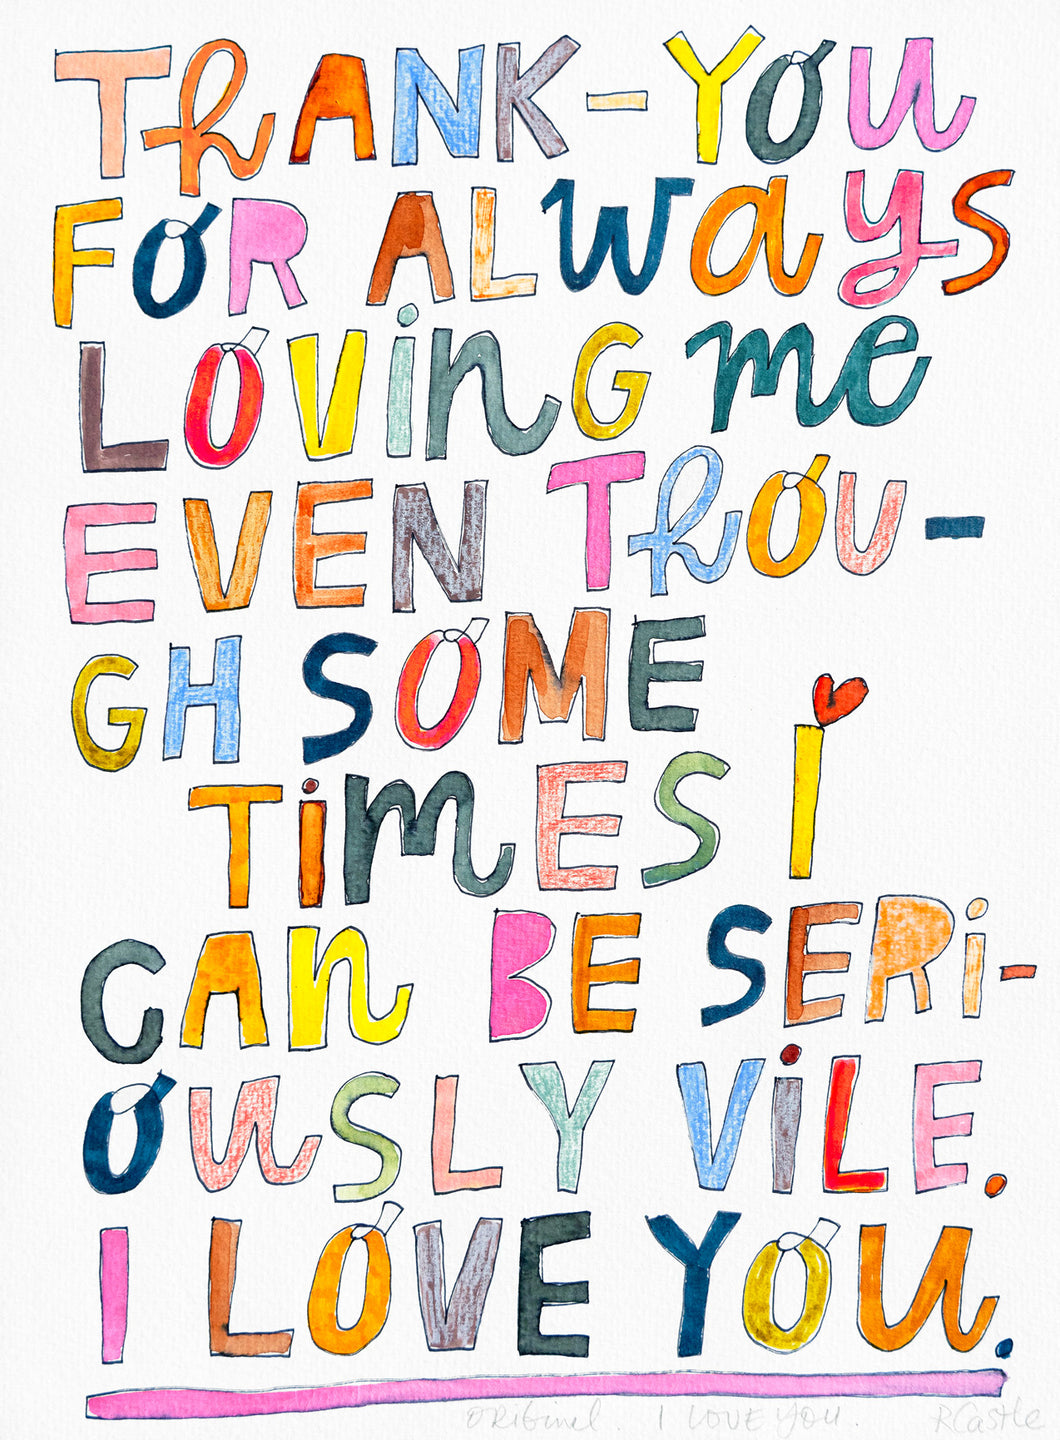 THANK-YOU
FOR ALwayS
LOVinG me
EVEN THOU-
GH SOME
TimES I
CAn BE SERi-
OuSLY ViLE.
I LOVE YOu.
ORIGINAL. I LOVE YOU. RCastle